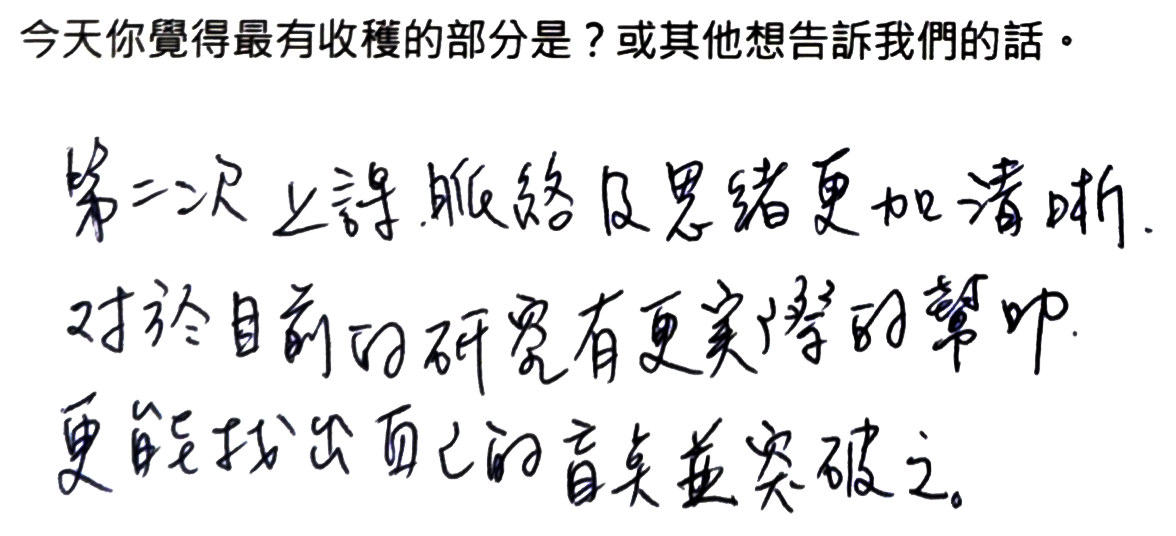 今天你覺得最有收穫的部分是？或其他想告訴我們的話。
第二次上課.脈絡及思緒更加清晰.
对於目前的研究有更実際的幫助.
更能找出自己的盲点並突破之。